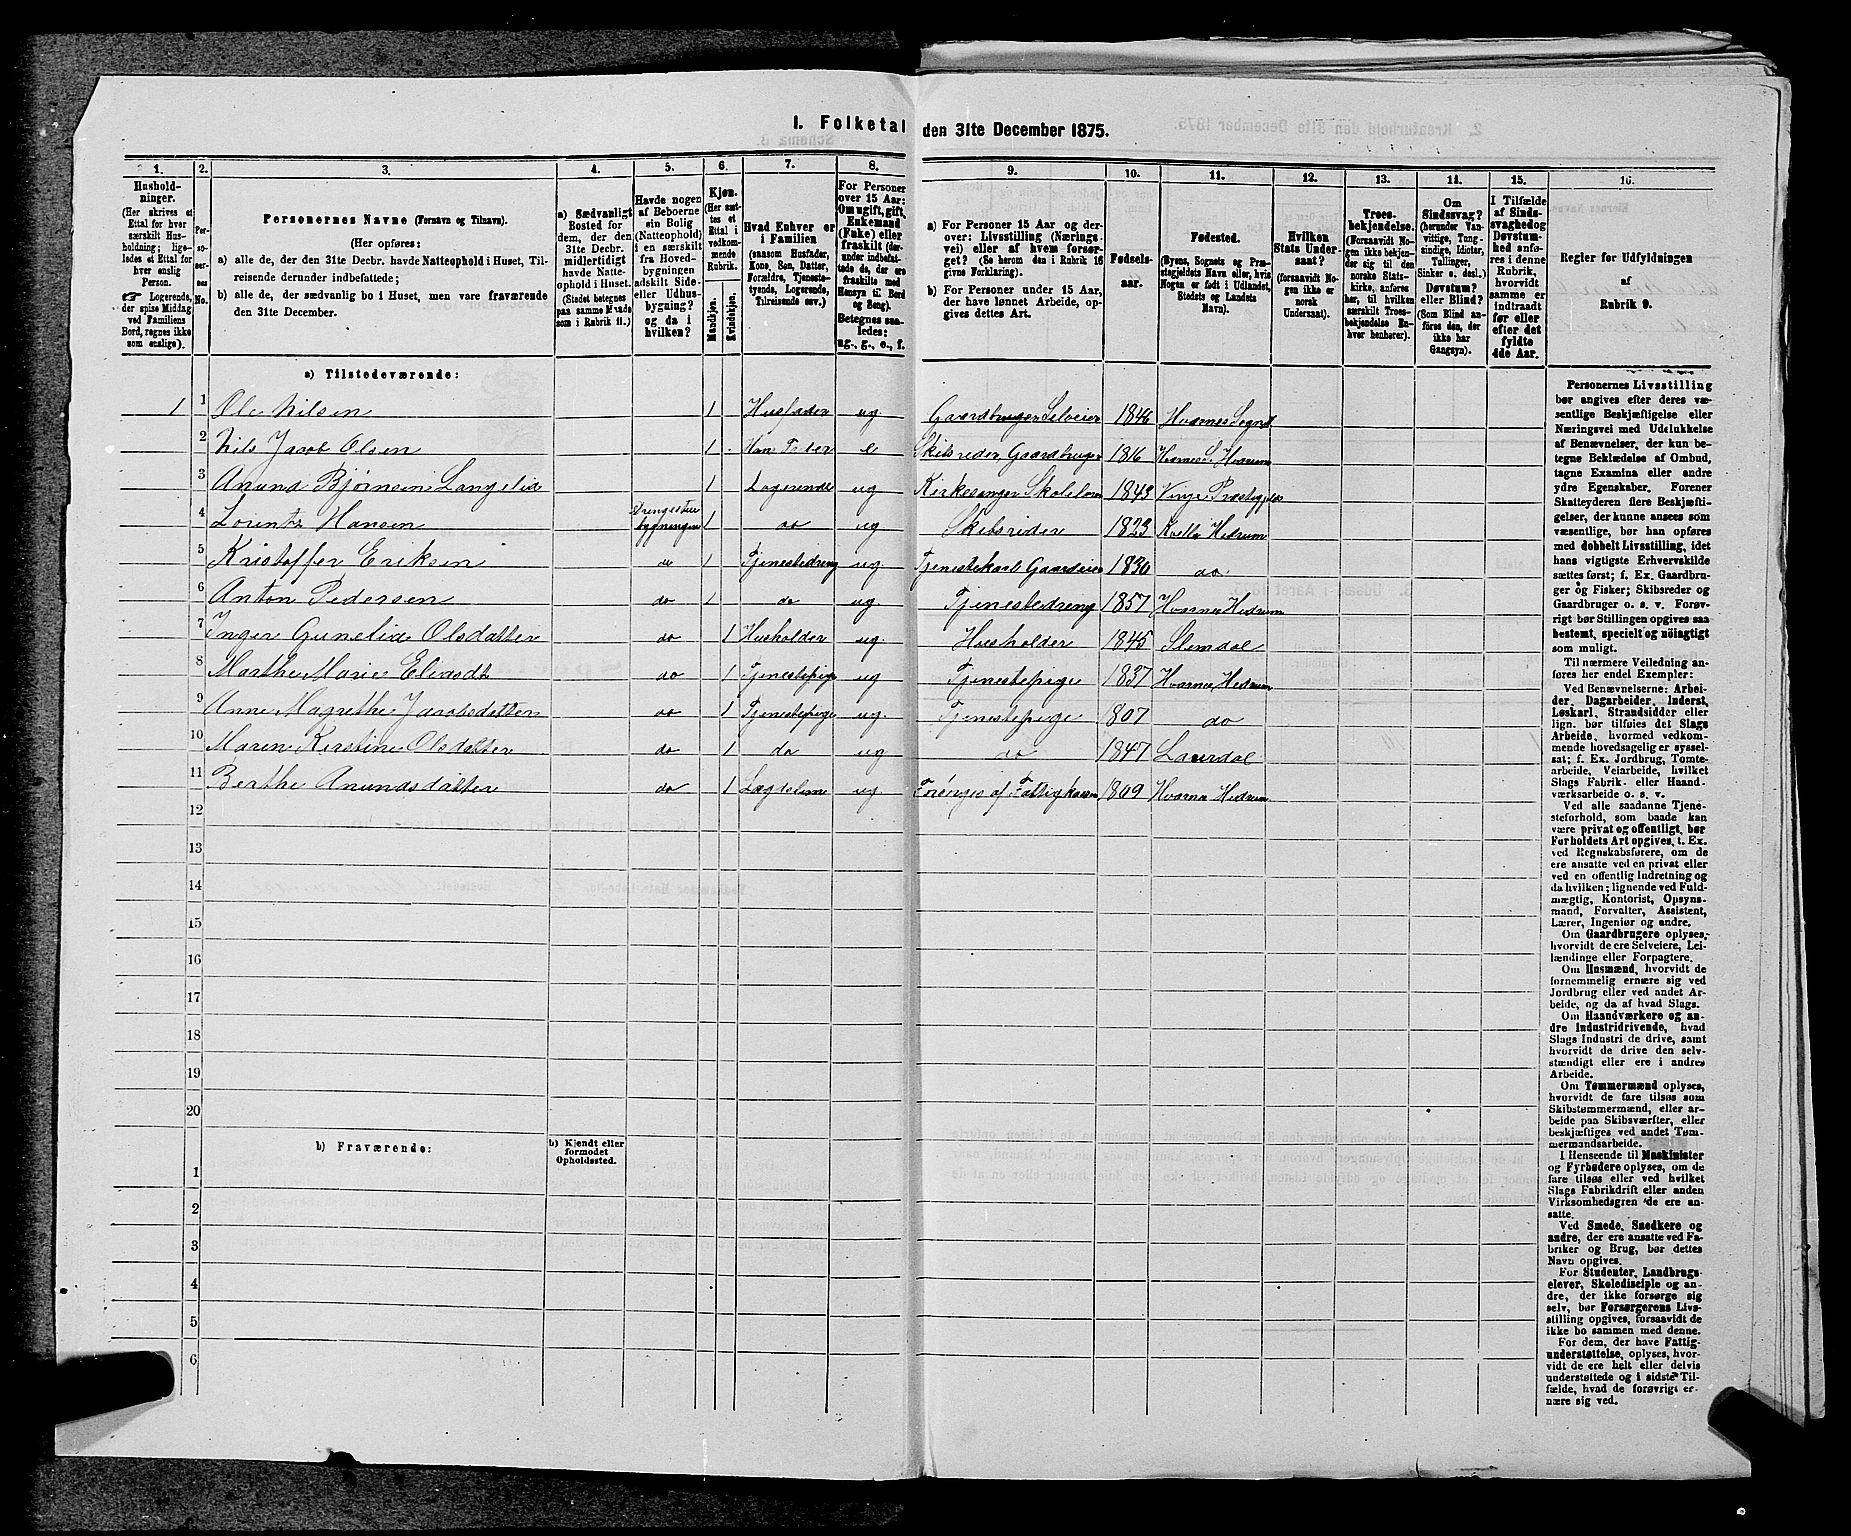 1. Folketal den 31te December 1875.
1. 2. 3. 4. 5. 6. 7. 8. 9. 10. 11. 12. 13. 14. 15. 16.
Husholdninger.
(Her skrives et
Ettal for hver
særskilt Husholdning;
ligeledes et Ettal for
hver enslig
Person.
☞ Logerende,
der spise Middag
ved Familiens
Bord, regnes ikke
som enslige).
Personernes No.
Personernes Navne (Fornavn og Tilnavn).
(Her opføres:
a) alle de, der den 31te Decbr. havde Natteophold i Huset, Tilreisende derunder indbefattede;
b) alle de, der sædvanlig bo i Huset, men vare fraværende
den 31te December.
a) Sædvanligt
Bosted for
dem, der den
31te Decbr.
midlertidigt
havde Natteophold
i Huset.
(Stedet betegnes
paa samme Maade
som i Rubrik 11.)
Havde nogen
af Beboerne
sin Bolig
(Natteophold)
i en særskilt
fra Hovedbygningen
adskilt Side-
eller Udhusbygning?
og da i
hvilken?
Kjøn.
(Her sættes
et
Ettal i
vedkommende
Rubrik.
Mandkjøn.
Kvindekjøn.
Hvad Enhver er
i Familien
(saasom Husfader,
Kone, Søn, Datter,
Forældre, Tjenestetyende,
Logerende,
Tilreisende osv.)
For Personer
over 15 Aar:
Om ugift, gift,
Enkemand
(Enke) eller
fraskilt (derunder
indbefattede
de, der ere
fraskilte med
Hensyn til Bord
og Seng).
Betegnes saaledes:
ug., g., e., f.
a) For Personer 15 Aar og derover:
Livsstilling (Næringsvei)
eller af hvem forsørget?
(Se herom den i Rubrik 16
givne Forklaring).
b) For Personer under 15 Aar,
der have lønnet Arbeide, opgives
dettes Art.
Fødselsaar.
Fødested.
(Byens, Sognets og Præstegjeldets
Navn eller, hvis
Nogen er født i Udlandet,
Stedets og Landets
Navn).
Hvilken
Stats Undersaat?
(forsaavidt Nogen
ikke er
norsk
Undersaat).
Troesbekjendelse.
(Forsaavidt Nogen
ikke bekjender
sig til den
norske Statskirke,
anføres
her, til hvilken
særskilt Troesbekjendelse
Enhver
henhører).
Om
Sindssvag?
(herunder Vanvittige,
Tungsindige,
Idioter,
Tullinger,
Sinker o. desl.)
Døvstum?
eller Blind?
(Som Blind anføres
den, der
ikke har
Gangsyn).
I Tilfælde
af Sindssvaghed og
Døvstumhed
anføres
i denne
Rubrik,
hvorvidt
samme er
indtraadt
før eller
efter det
fyldte
4de Aar.
Regler for Udfyldningen
af
Rubrik 9.
a) Tilstedeværende:
1 1 Ole Nilsen 1 Husfader ug Gaardbruger Selveier 1846 Hvarnes Sogn
2 Nils Jacob Olsen 1 Hans Fader e Skibsreder Gaardbruger 1816 Hvarnes S. Hedrum
3 Anund Bjørnsen Langelid 1 Logerende ug Kirkesanger Skolelærer 1843 Vinje Præstegjeld
4 Lorentz Hansen bygningen 1 do ug Skibsreder 1823 Hedrum
5 Kristoffer Eriksen do 1 Tjenestedreng ug Tjenestekarl Gaardeier 1830 do
6 Anton Pedersen do 1 do ug Tjenestedreng 1857 Hvarnes Hedrum
7 Inger Gunelia Olsdatter do 1 Husholder ug Husholder 1845 Slemdal
8 Marthe Marie Eliasdt do 1 Tjenestepige ug Tjenestepige 1837 Hvarnes Hedrum
9 Anne Magrethe Jacobsdatter do 1 Tjenestepige ug Tjenestepige 1807 do
10 Maren Kirstine Olsdatter do 1 do ug do 1847 Laurdal
11 Berthe Anundsdatter do 1 Lægdslem ug Forsørges af Fattigkassen 1809 Hvarnes Hedrum
12
13
14
15
16
17
18
19
20
b) Fraværende:
b) Kjendt eller
formodet
Opholdssted.
1
2
3
4
5
6
Personernes Livsstilling
bør angives efter deres væsentlige
Beskjæftigelse eller
Næringsvei med Udelukkelse
af Benævnelser, der kun betegne
Beklædelse af Ombud,
tagne Examina eller andre
ydre Egenskaber. Forener
Skatteyderen flere Beskjæftigelser,
der kunne ansees som
væsentlige, bør han opføres
med dobbelt Livsstilling, idet
hans vigtigste Erhvervskilde
sættes først; f. Ex. Gaardbruger
og Fisker; Skibsreder og
Gaardbruger o. s. v. Forøvrigt
bør Stillingen opgives saa
bestemt, specielt og nöiagtigt
som muligt.
Til nærmere Veiledning anføres
her endel Exempler:
Ved Benævnelserne: Arbeider,
Dagarbeider, Inderst,
Løskarl, Strandsidder eller
lign. bør tilføies det Slags
Arbeide, hvormed vedkommende
hovedsagelig er sysselsat;
f. Ex. Jordbrug, Tomtearbeide,
Veiarbeide, hvilket
Slags Fabrik- eller Haandværksarbeide
o. s. v.
Ved alle saadanne Tjenesteforhold,
som baade kan
være privat og offentligt, bør
Forholdets Art opgives, t. Ex.
ved Regnskabsførere, om de
ere ansatte ved en privat eller
ved en offentlig Indretning og
da hvilken; lignende ved Fuldmægtig,
Kontorist, Opsynsmand,
Forvalter, Assistent,
Lærer, Ingeniør og andre.
Om Gaardbrugere oplyses,
hvorvidt de ere Selveiere, Leilændinge
eller Forpagtere.
Om Husmænd, hvorvidt de
fornemmelig ernære sig ved
Jordbrug eller ved andet Arbeide,
og da af hvad Slags.
Om Haandværkere og andre
Industridrivende, hvad
Slags Industri de drive, samt
hvorvidt de drive den selvstændigt
eller ere i andres
Arbeide.
Om Tømmermænd oplyses,
hvorvidt de fare tilsøs som
Skibstømmermænd, eller arbeide
paa Skibsværfter, eller
beskjæftiges ved andet Tømmermandsarbeide.
I Henseende til Maskinister
og Fyrbødere oplyses, om de
fare tilsøs eller ved hvilket
Slags Fabrikdrift eller anden
Virksomhedsgren de ere ansatte.
Ved Smede, Snedkere og
andre, der ere ansatte ved Fabriker
og Brug, bør dettes
Navn opgives.
For Studenter, Landbrugselever,
Skoledisciple og andre,
der ikke forsørge sig
selv, bør Forsørgerens Livsstilling
opgives, forsaavidt de
ikke bo sammen med denne.
For dem, der have Fattigunderstøttelse,
oplyses, hvorvidt
de ere helt eller delvis
understøttede og i sidste Tilfælde,
hvad de forøvrigt ernære
sig ved.